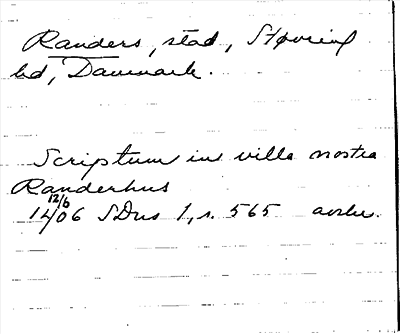 Randers, stad, Støvring
hd, Danmark.
Scriptum in villa nostra
Randerhus
14 12/6 06 SDns 1, s. 565 avskr.